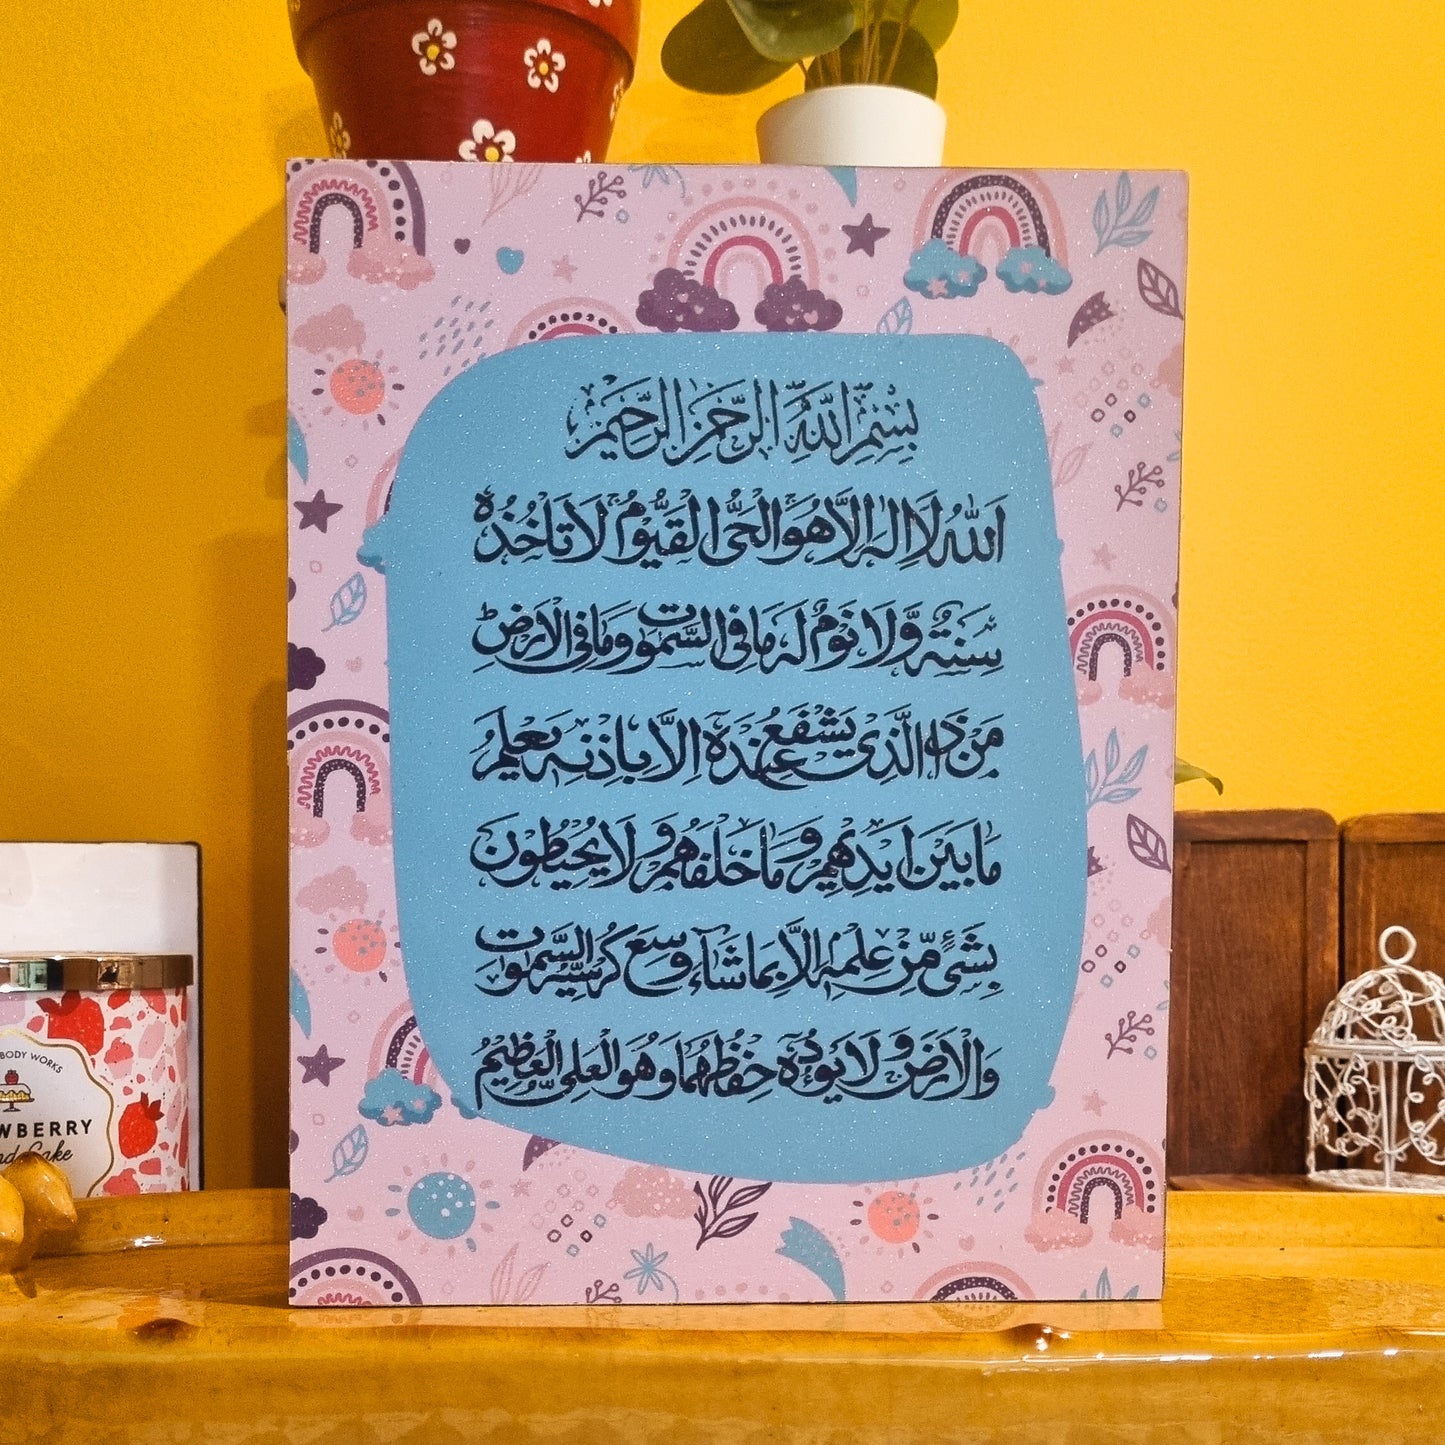 بِسْمِ اللّٰهِ الرَّحْمٰنِ الرَّحِيْمِ
اَللّٰهُ لَا اِلٰهَ اِلَّا هُوَ الْحَیُّ الْقَیُّوْمُ لَا تَاْخُذُهٗ
سِنَةٌ وَّلَا نَوْمٌ لَهٗ مَا فِی السَّمٰوٰتِ وَمَا فِی الْاَرْضِ
مَنْ ذَا الَّذِیْ یَشْفَعُ عِنْدَهٗ اِلَّا بِاِذْنِهٖ یَعْلَمُ
مَا بَیْنَ اَیْدِیْهِمْ وَمَا خَلْفَهُمْ وَلَا یُحِیْطُوْنَ
بِشَیْءٍ مِّنْ عِلْمِهٖ اِلَّا بِمَا شَآءَ وَسِعَ كُرْسِیُّهُ السَّمٰوٰتِ
وَالْاَرْضَ وَلَا یَئُوْدُهٗ حِفْظُهُمَا وَهُوَ الْعَلِیُّ الْعَظِیْمُ
BODY WORKS